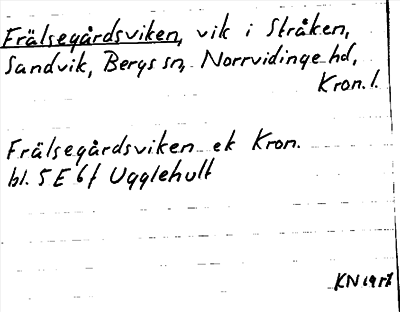 Frälsegårdsviken, vik i Stråken,
Sandvik, Bergs sn, Norrvidinge hd,
Kron. l.
Frälsegårdsviken ek Kron.
bl. 5 E 6f Ugglehult
KN